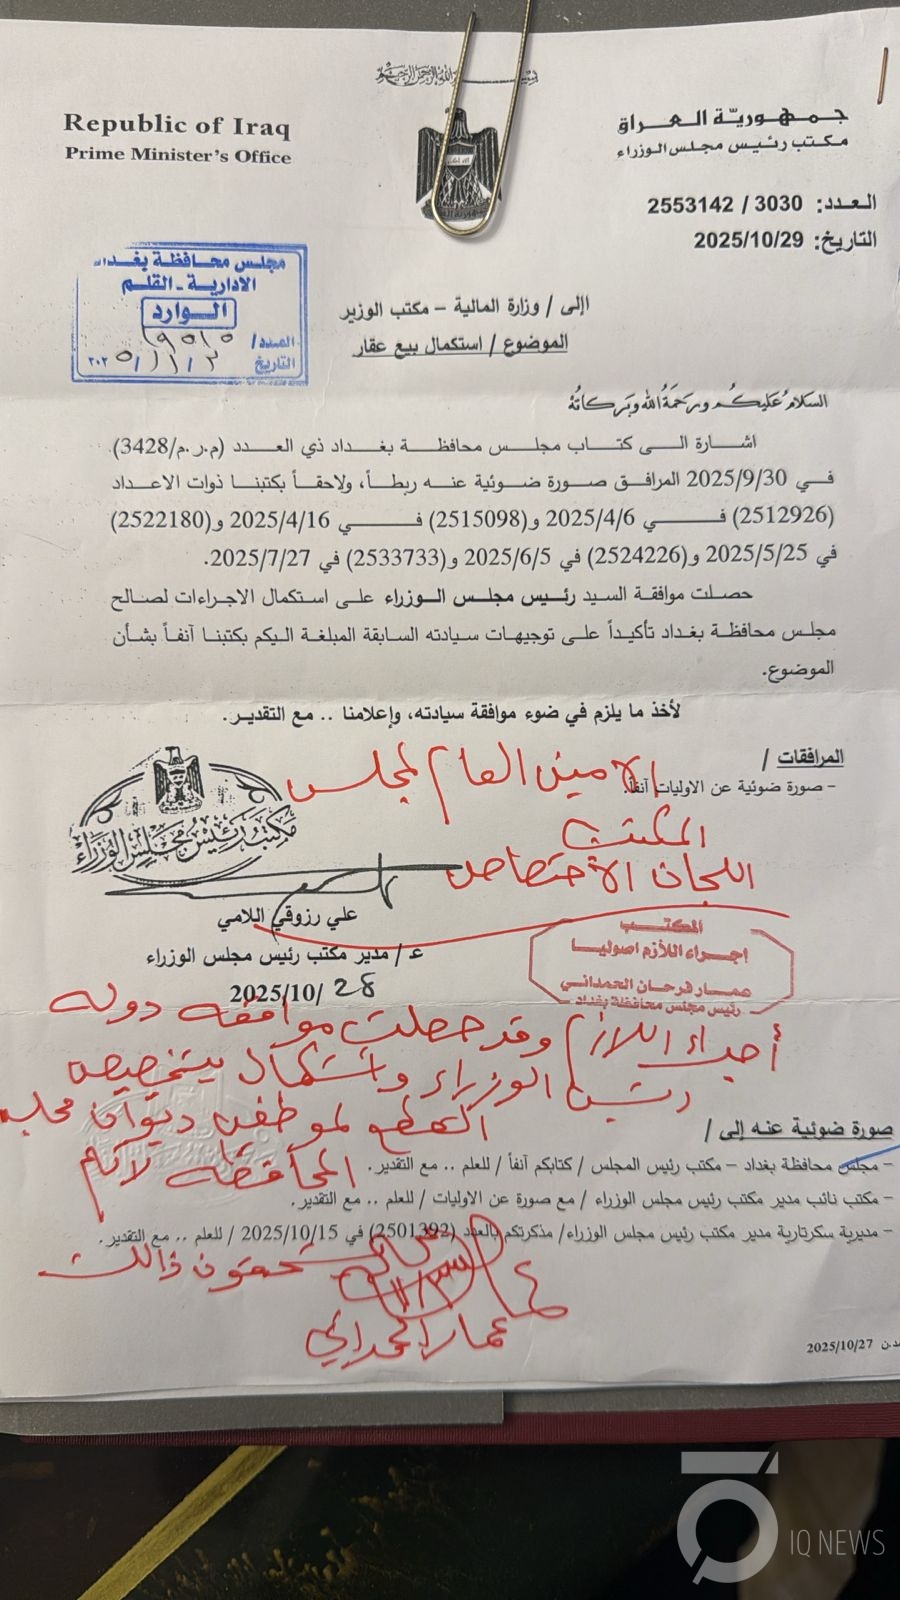 بسم الله الرحمن الرحيم
Republic of Iraq
Prime Minister's Office
جمهورية العراق
مكتب رئيس مجلس الوزراء
العدد: 3030 / 2553142
التاريخ: 2025/10/29
مجلس محافظة بغداد
الادارية - القلم
الوارد
العدد/
التاريخ
االى / وزارة المالية – مكتب الوزير
الموضوع / استكمال بيع عقار
السلام عليكم ورحمة الله وبركاته
اشارة الى كتاب مجلس محافظة بغداد ذي العدد (م.ر.م/3428)
في 2025/9/30 المرافق صورة ضوئية عنه ربطاً، ولاحقاً بكتبنا ذوات الاعداد
(2512926) في 2025/4/6 و(2515098) في 2025/4/16 و(2522180)
في 2025/5/25 و(2524226) في 2025/6/5 و(2533733) في 2025/7/27.
حصلت موافقة السيد رئيس مجلس الوزراء على استكمال الاجراءات لصالح
مجلس محافظة بغداد تأكيداً على توجيهات سيادته السابقة المبلغة اليكم بكتبنا آنفاً بشأن
الموضوع.
لأخذ ما يلزم في ضوء موافقة سيادته، وإعلامنا .. مع التقدير.
المرافقات /
– صورة ضوئية عن الاوليات آنفاً.
الامين العام لمجلس
المكتب
اللجان الاختصاص
مكتب رئيس مجلس الوزراء
علي رزوقي اللامي
ع / مدير مكتب رئيس مجلس الوزراء
2025/10/ 28
المكتب
اجراء اللازم اصوليا
عمار فرحان الحمداني
رئيس مجلس محافظة بغداد
أجراء اللازم وقد حصلت موافقة دولة
رئيس الوزراء واستكمال بتخصيص
القطع لموظفين ديوان مجلس
المحافظة لانهم
يستحقون ذالك
عمار الحمداني
صورة ضوئية عنه إلى /
– مجلس محافظة بغداد – مكتب رئيس المجلس / كتابكم آنفاً / للعلم .. مع التقدير.
– مكتب نائب مدير مكتب رئيس مجلس الوزراء / مع صورة عن الاوليات / للعلم .. مع التقدير.
– مديرية سكرتارية مدير مكتب رئيس مجلس الوزراء/ مذكرتكم بالعدد (2501392) في 2025/10/15 / للعلم .. مع التقدير.
2025/10/27
IQ NEWS